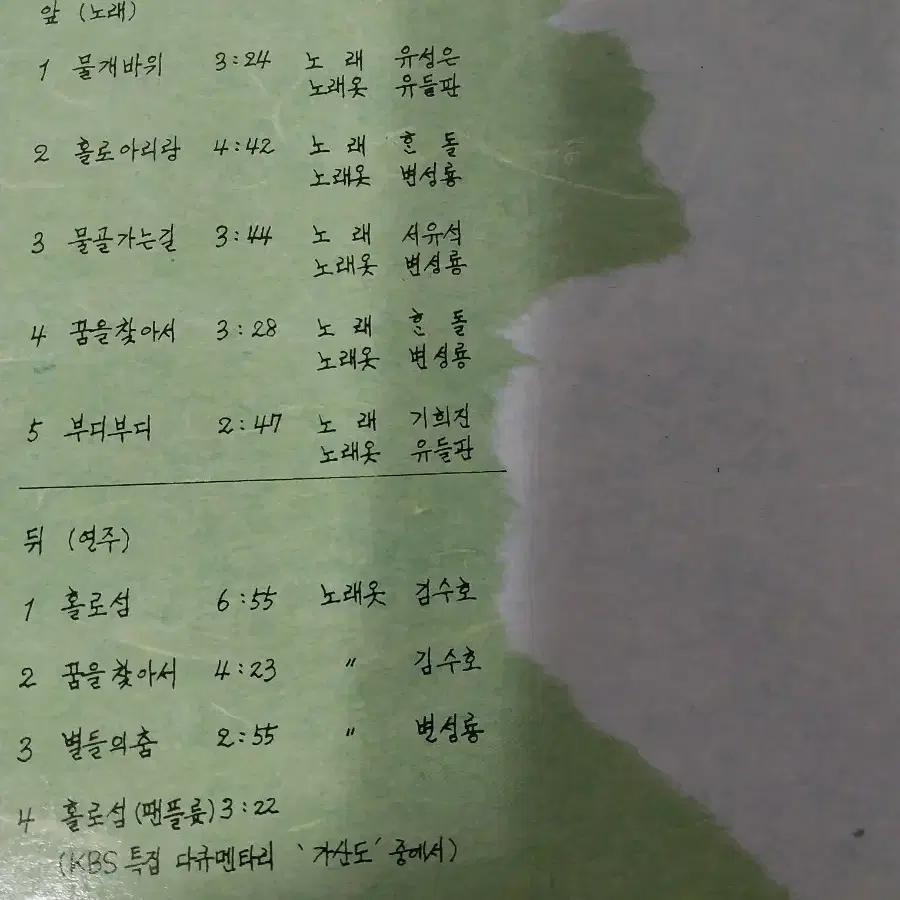 앞 (노래)
1 물개바위 3:24 노 래 유성은
노래옷 유들판
2 홀로아리랑 4:42 노 래 한 돌
노래옷 변성룡
3 물골가는길 3:44 노 래 서유석
노래옷 변성룡
4 꿈을찾아서 3:28 노 래 한 돌
노래옷 변성룡
5 부디부디 2:47 노 래 기희진
노래옷 유들판
뒤 (연주)
1 홀로섬 6:55 노래옷 김수호
2 꿈을찾아서 4:23 〃 김수호
3 별들의춤 2:55 〃 변성룡
4 홀로섬(팬플룻) 3:22
(KBS 특집 다큐멘타리 '가산도' 중에서)